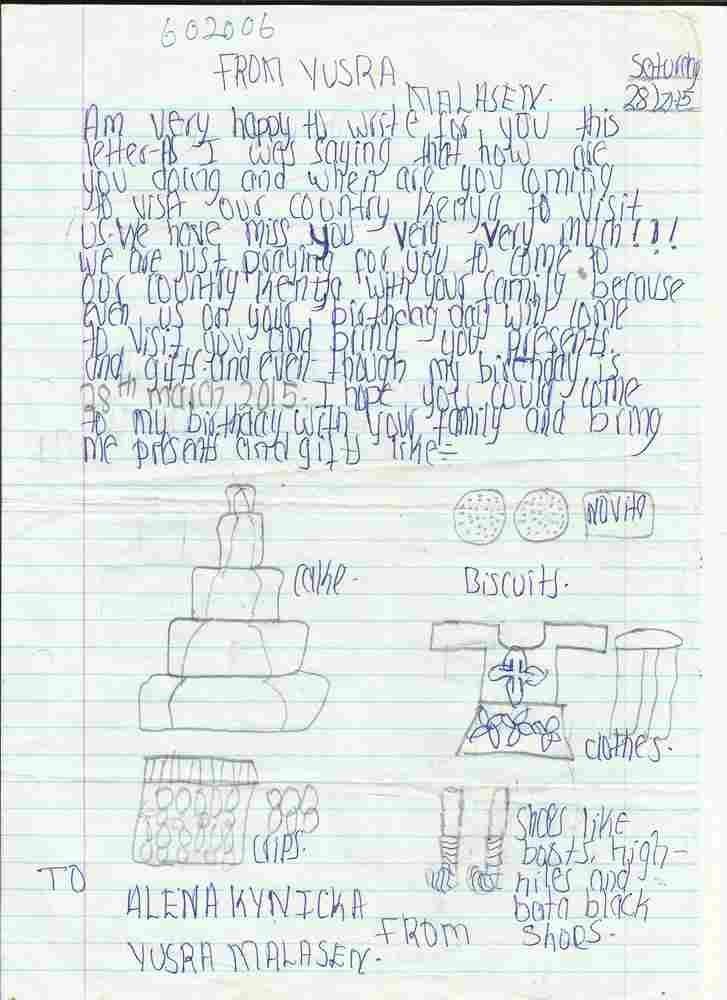 602006
FROM YUSRA
MALASEN.
Saturday
28/2/15
Am very happy to write for you this
letter-As I was saying that how are
you doing and when are you coming
to visit our country Kenya to visit
us. We have miss you very very much!!!
we are just praying for you to come to
our country Kenya with your family because
even us on your birthday day will come
to visit you and bring you presents.
and gifts. and even though my birthday is
28th march 2015. I hope you could come
to my birthday with your family and bring
me presents and gifts like=
cake.
NOVITA
Biscuits.
clothes.
crips.
shoes like
boots, high-
hiles and
bata black
shoes.
TO
ALENA KYNICKA
FROM
YUSRA MALASEN.